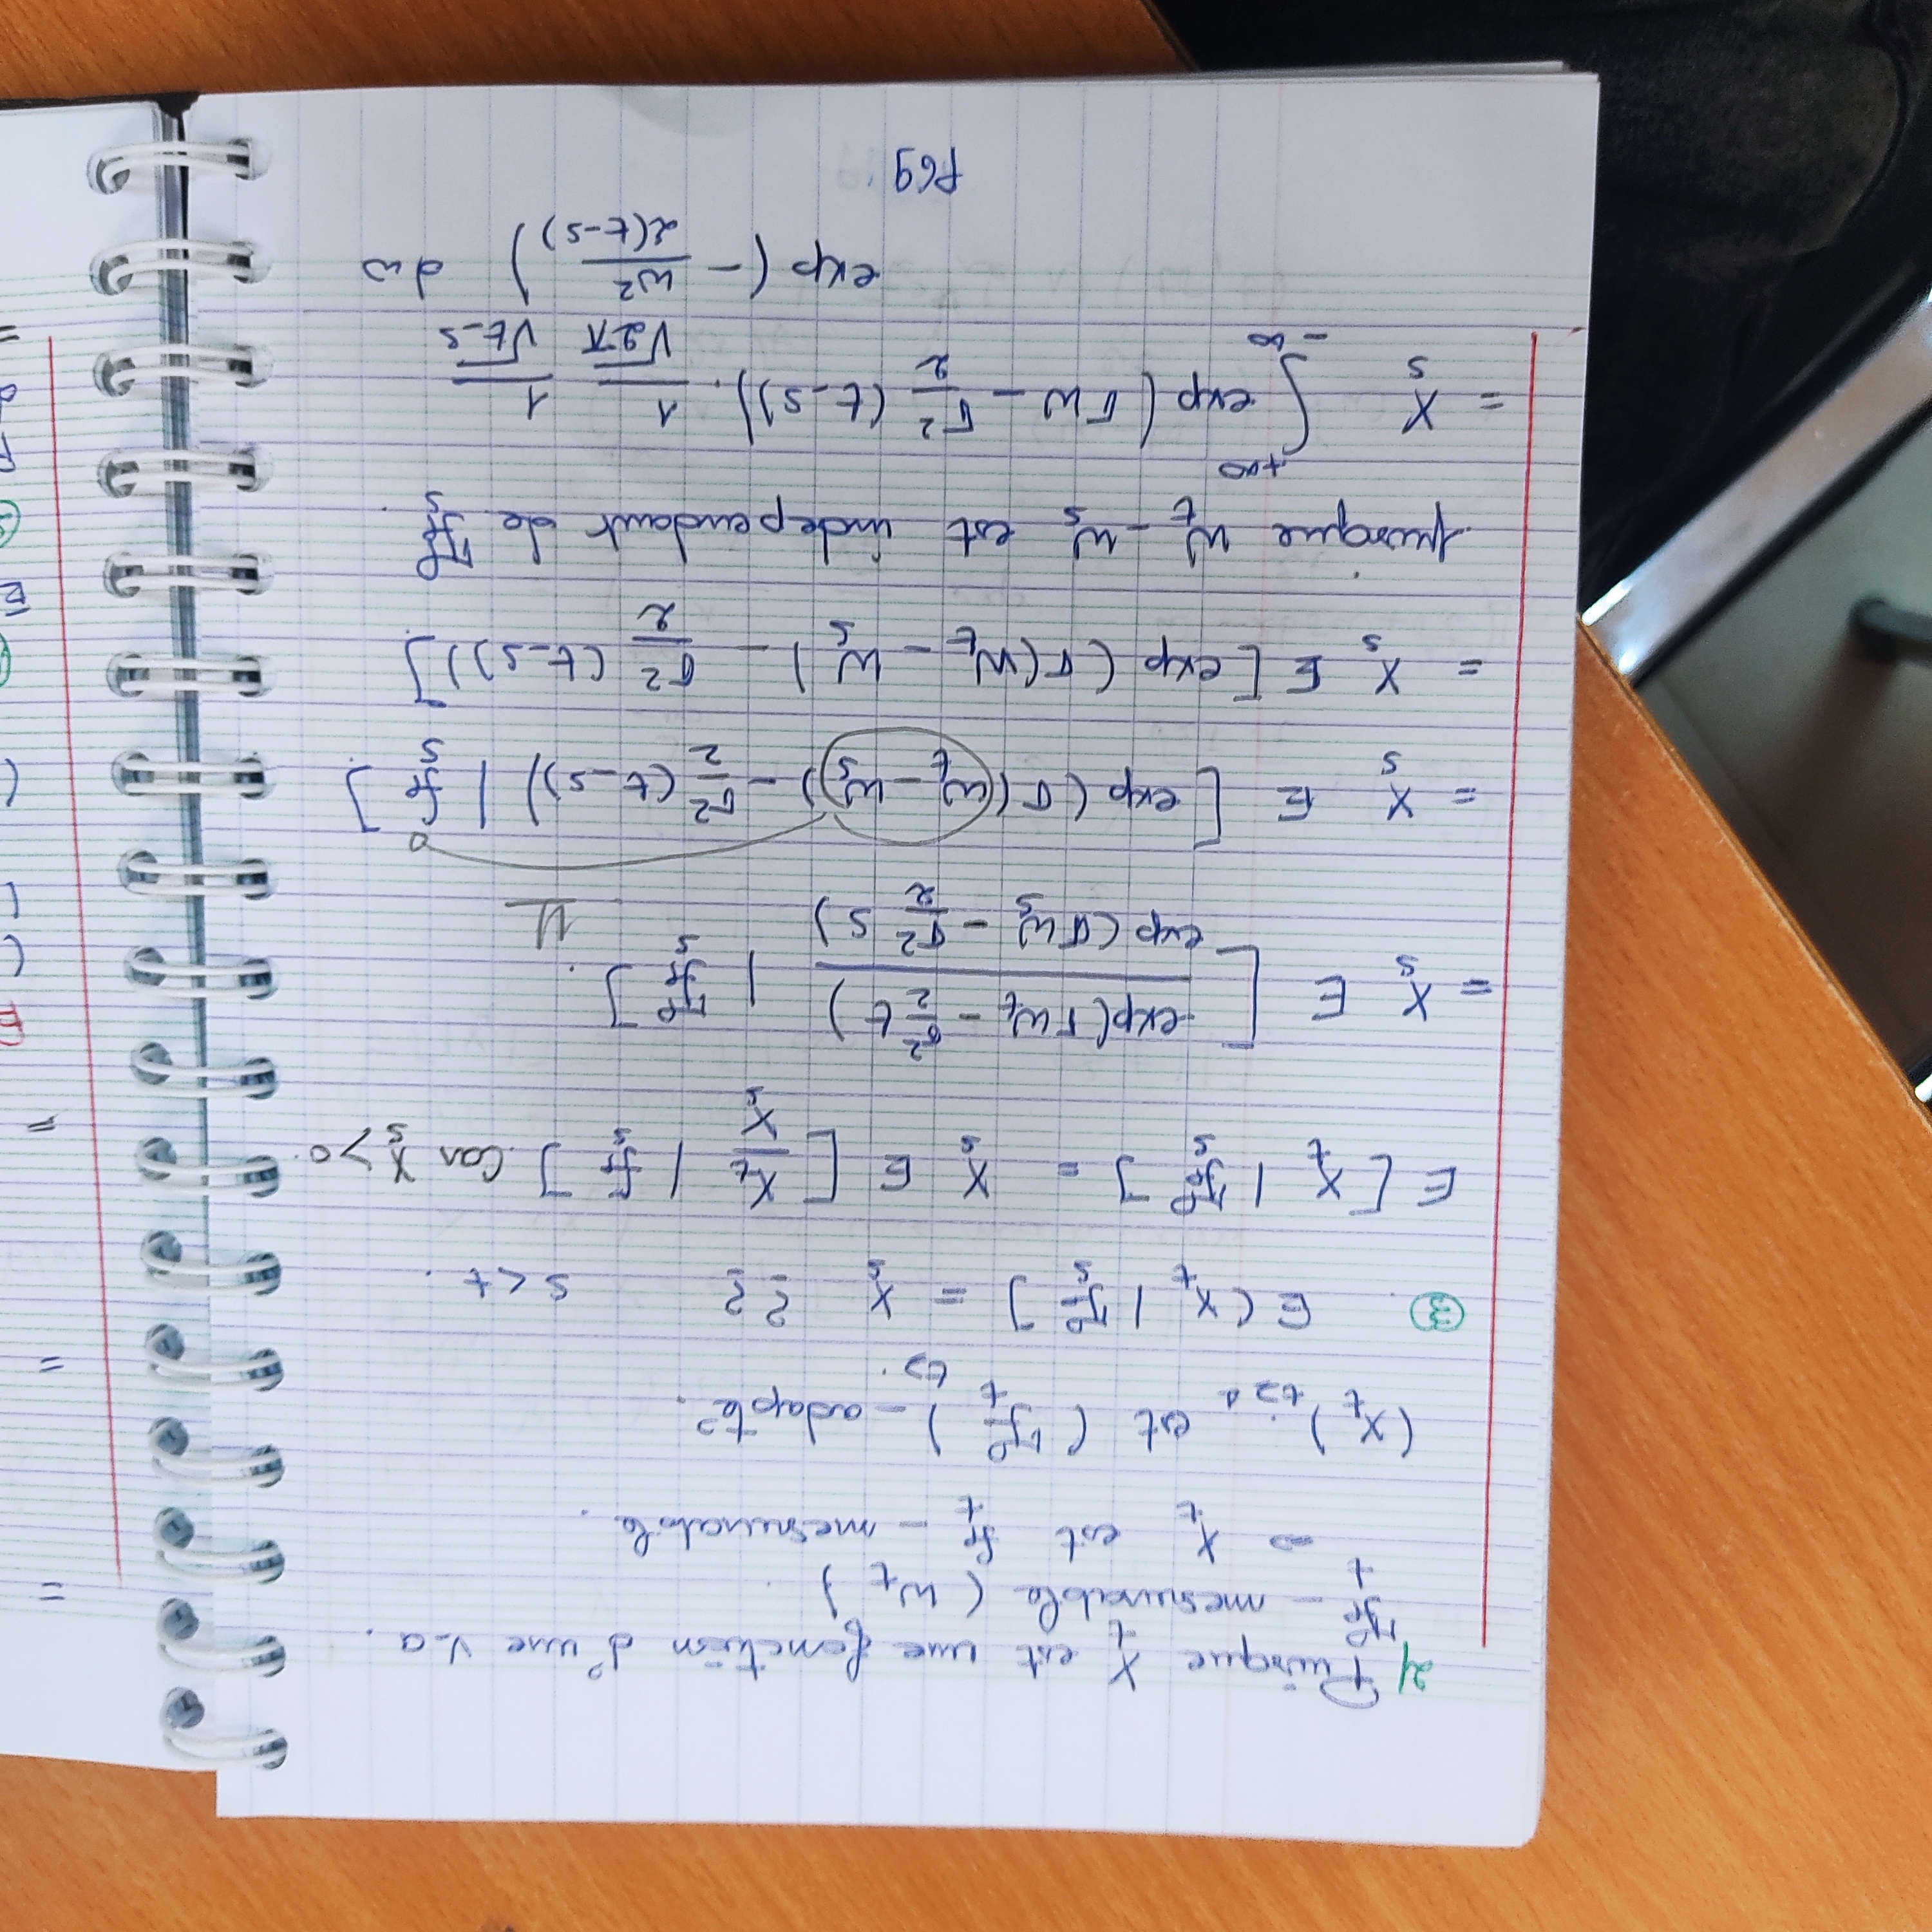 2/ Puisque X_t est une fonction d'une v.a.
𝓕_t - mesurable (W_t).
⇒ X_t est 𝓕_t - mesurable.
(X_t)_t≥0 est (𝓕_t)_t≥. - adapté.
③. E(X_t | 𝓕_s] = X_s ?? s<t.
E[X_t | 𝓕_s] = X_s E[X_t/X_s | 𝓕_s] Car X_s>0.
= X_s E[exp(σW_t - σ²/2 t) / exp(σW_s - σ²/2 s) | 𝓕_s].
⊥
= X_s E[exp(σ(W_t - W_s) - σ²/2 (t-s)) | 𝓕_s].
= X_s E[exp(σ(W_t - W_s) - σ²/2 (t-s))]
puisque W_t - W_s est independant de 𝓕_s.
= X_s ∫_-∞^+∞ exp(σw - σ²/2 (t-s)). 1/√2π 1/√t-s
exp(- w²/2(t-s)) dw
P69
=
=
=